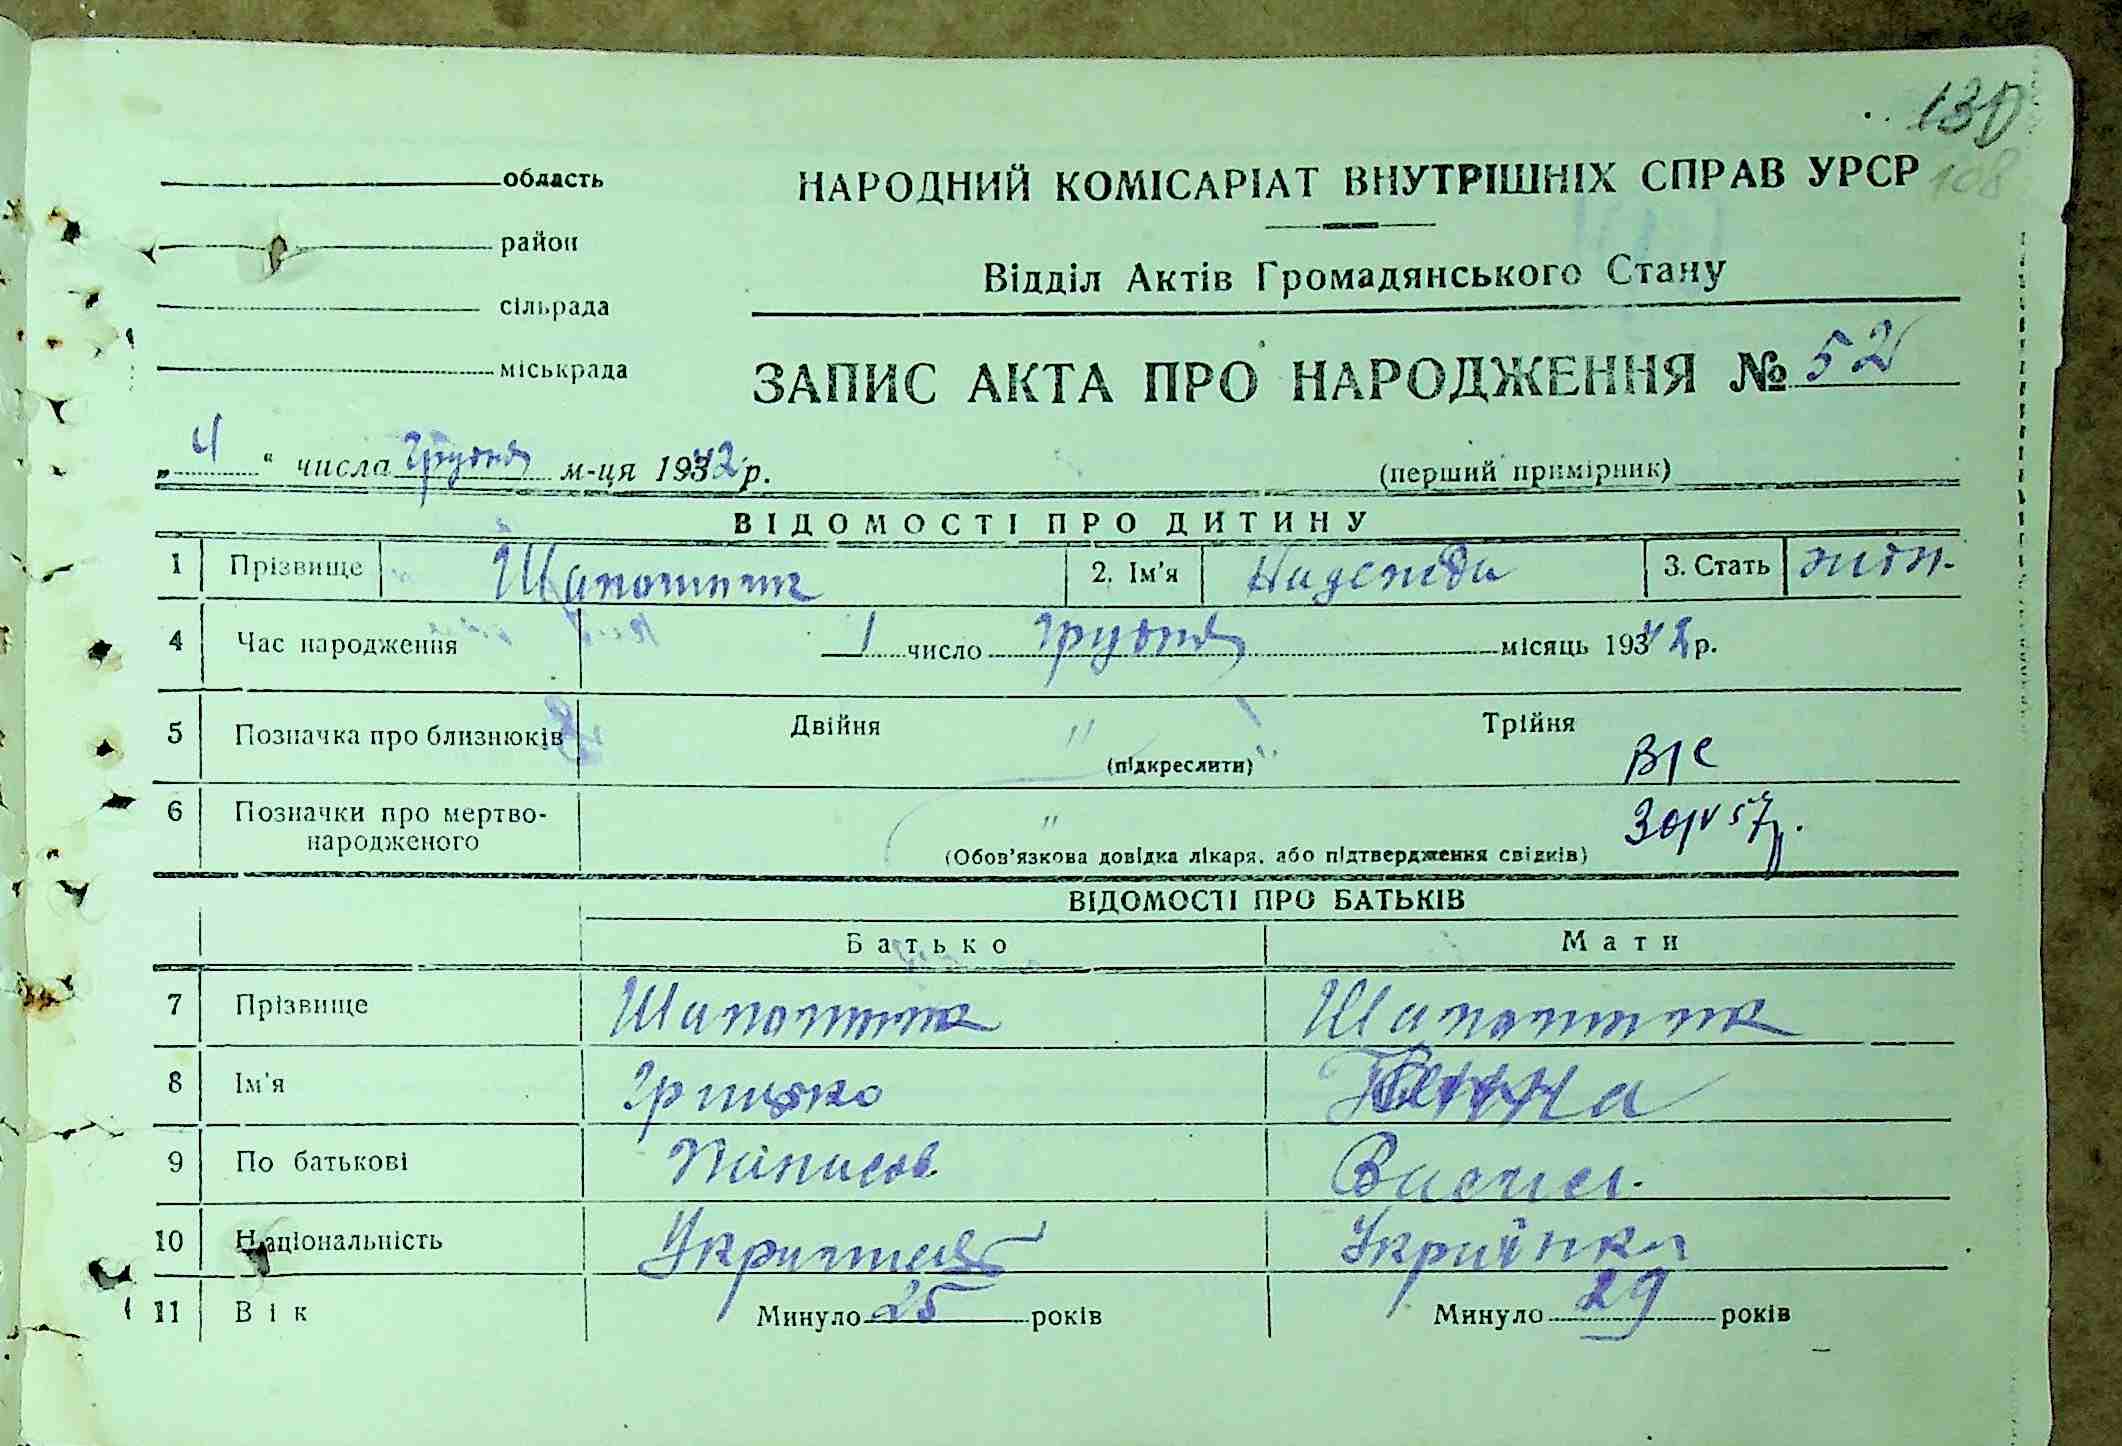 130
108
область
НАРОДНИЙ КОМІСАРІАТ ВНУТРІШНІХ СПРАВ УРСР
район
Відділ Актів Громадянського Стану
сільрада
міськрада
ЗАПИС АКТА ПРО НАРОДЖЕННЯ № 52
„ 4 “ числа грудня м-ця 1942 р.
(перший примірник)
ВІДОМОСТІ ПРО ДИТИНУ
1 Прізвище Шапошник 2. Ім'я Надежда 3. Стать жін.
4 Час народження 1 число грудня місяць 1942 р.
5 Позначка про близнюків Двійня " Трійня
(підкреслити)
6 Позначки про мертво-народженого "
(Обов'язкова довідка лікаря, або підтвердження свідків)
ВІДОМОСТІ ПРО БАТЬКІВ
Батько Мати
7 Прізвище Шапошник Шапошник
8 Ім'я Грицько
9 По батькові Василь.
10 Національність Українець Українка
11 Вік Минуло 25 років Минуло 29 років